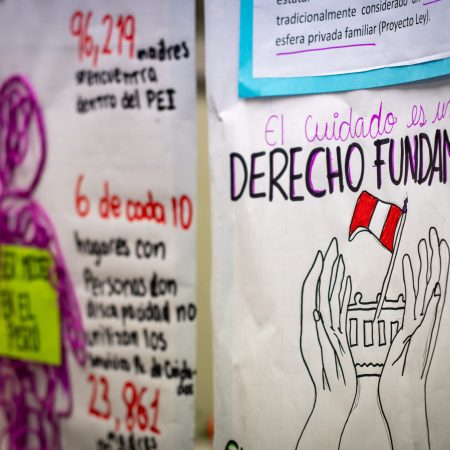 96,219 madres
se encuentra
dentro del PEI
6 de cada 10
hogares con
Personas con
discapacidad no
utilizan los
23,861
EN EL
PERÚ
tradicionalmente considerado
esfera privada familiar (Proyecto Ley).
El cuidado es un
DERECHO FUNDAM